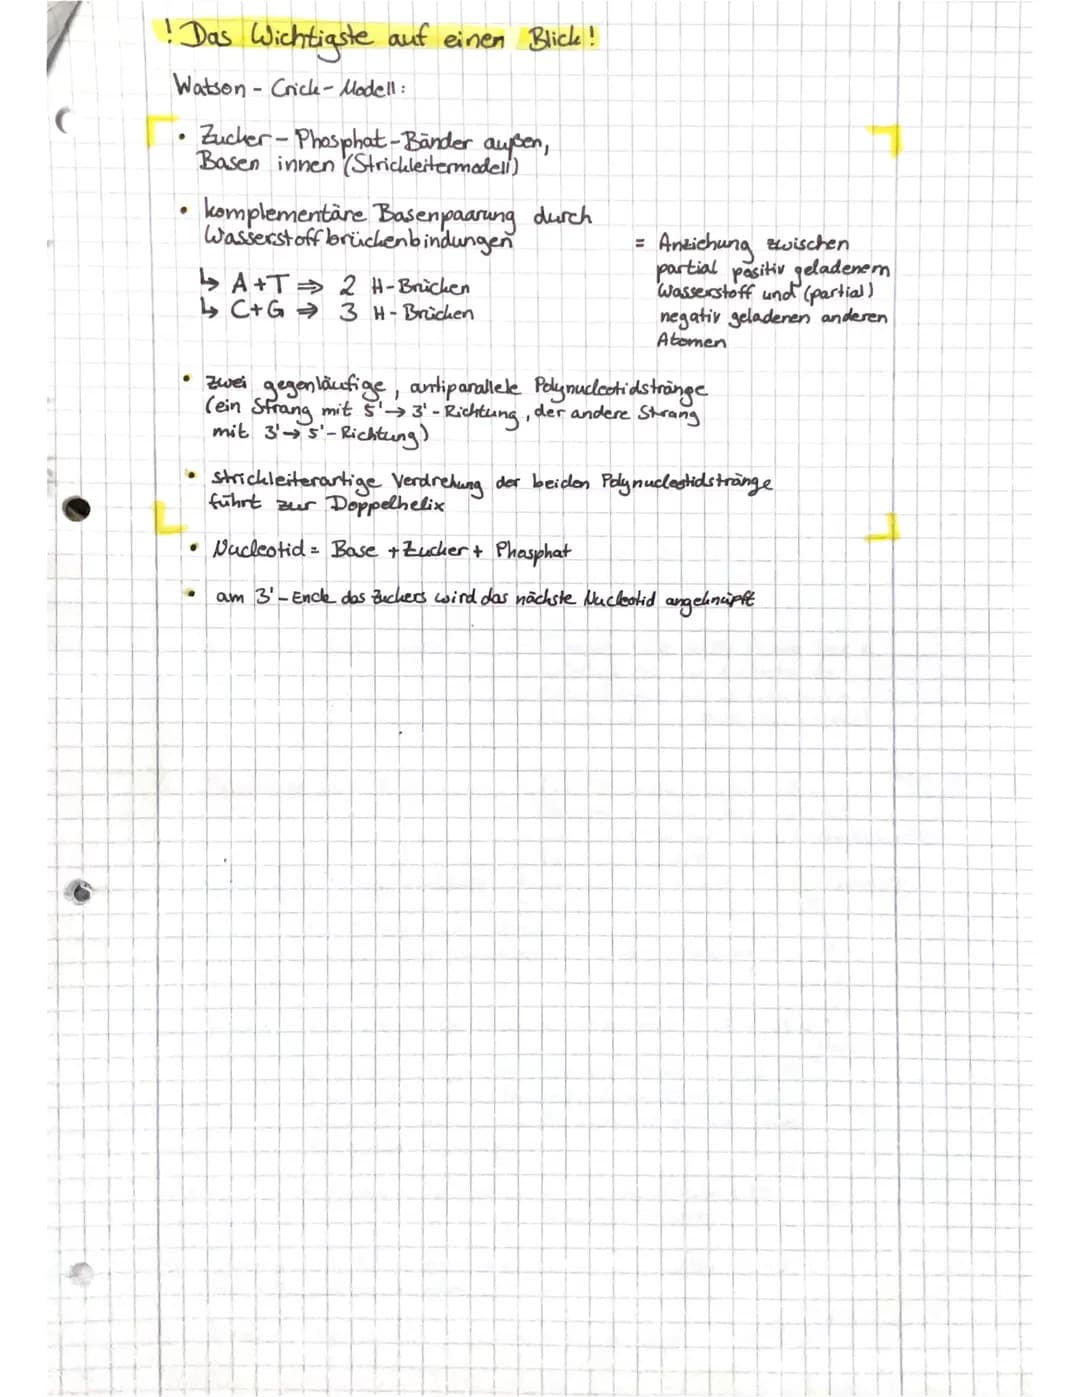 ! Das Wichtigste auf einen Blick!
Watson - Crick - Modell:
• Zucker - Phosphat - Bänder außen,
Basen innen (Strickleitermodell)
• komplementäre Basenpaarung durch
Wasserstoffbrückenbindungen
= Anziehung zwischen
partial positiv geladenem
Wasserstoff und (partial)
negativ geladenen anderen
Atomen
↳ A+T ⇒ 2 H-Brücken
↳ C+G ⇒ 3 H-Brücken
• zwei gegenläufige, antiparallele Polynucleotidstränge
(ein Strang mit 5'→3'-Richtung, der andere Strang
mit 3'→5'-Richtung)
• strickleiterartige Verdrehung der beiden Polynucleotidstränge
führt zur Doppelhelix
• Nucleotid = Base + Zucker + Phosphat
• am 3'-Ende des Zuckers wird das nächste Nucleotid angeknüpft